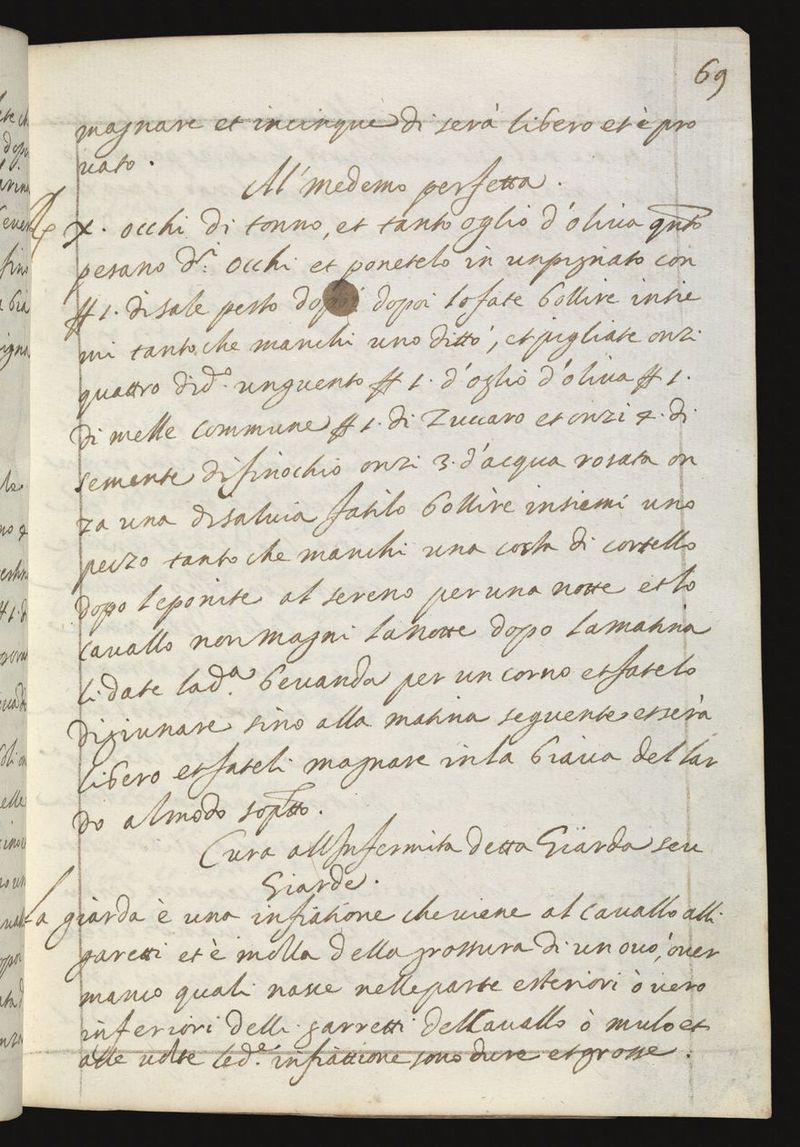 69
magnare et incinque di serà libero et è pro
vato.
All' medemo perfetta.
Rp X. occhi di tonno, et tanto oglio d'oliva qnto
pesano d.i occhi et ponetelo in un pignato con
# 1. di sale pesto dopoi dopoi lo fate bollire insie
mi tanto che manchi uno ditto, et pigliate onzi
quattro di d.o unguento # 1. d'oglio d'oliva # 1.
di melle commune # 1. di Zuccaro et onzi 4. di
semente di finochio onzi 3. d'acqua rosata on
za una di salvia fatilo bollire insiemi uno
pezzo tanto che manchi una costa di cortello
dopo le ponite al sereno per una notte et lo
cavallo non magni la notte dopo la matina
li date la d.a bevanda per un corno et fatelo
diggiunare sino alla matina seguente et serà
libero et fateli magnare in la biava del lar
do al modo sop.tto.
Cura all Infermita detta Giarda seu
Giarde.
La giarda è una infiatione che viene al Cavallo alli
garetti et è molla della grossura di un ovo, over
manco quali nasce nelle parte esteriori ò vero
inferiori delli garretti del Cavallo ò mulo et
alle volte le d.e infiattione sono dure et grosse.